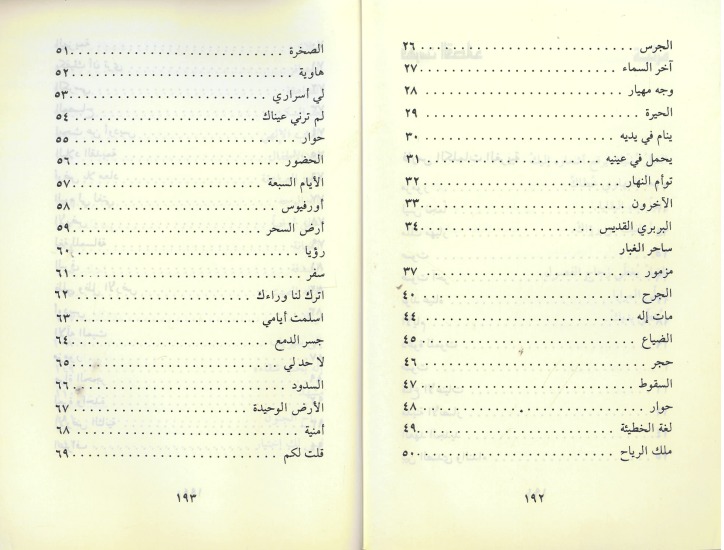 الجرس ........................ ٢٦
آخر السماء ........................ ٢٧
وجه مهيار ........................ ٢٨
الحيرة ........................ ٢٩
ينام في يديه ........................ ٣٠
يحمل في عينيه ........................ ٣١
توأم النهار ........................ ٣٢
الآخرون ........................ ٣٣
البربري القديس ........................ ٣٤
ساحر الغبار
مزمور ........................ ٣٧
الجرح ........................ ٤٠
مات إله ........................ ٤٤
الضياع ........................ ٤٥
حجر ........................ ٤٦
السقوط ........................ ٤٧
حوار ........................ ٤٨
لغة الخطيئة ........................ ٤٩
ملك الرياح ........................ ٥٠
١٩٢
الصخرة ........................ ٥١
هاوية ........................ ٥٢
لي أسراري ........................ ٥٣
لم ترني عيناك ........................ ٥٤
حوار ........................ ٥٥
الحضور ........................ ٥٦
الأيام السبعة ........................ ٥٧
أورفيوس ........................ ٥٨
أرض السحر ........................ ٥٩
رؤيا ........................ ٦٠
سفر ........................ ٦١
اترك لنا وراءك ........................ ٦٢
اسلمت أيامي ........................ ٦٣
جسر الدمع ........................ ٦٤
لا حد لي ........................ ٦٥
السدود ........................ ٦٦
الأرض الوحيدة ........................ ٦٧
أمنية ........................ ٦٨
قلت لكم ........................ ٦٩
١٩٣